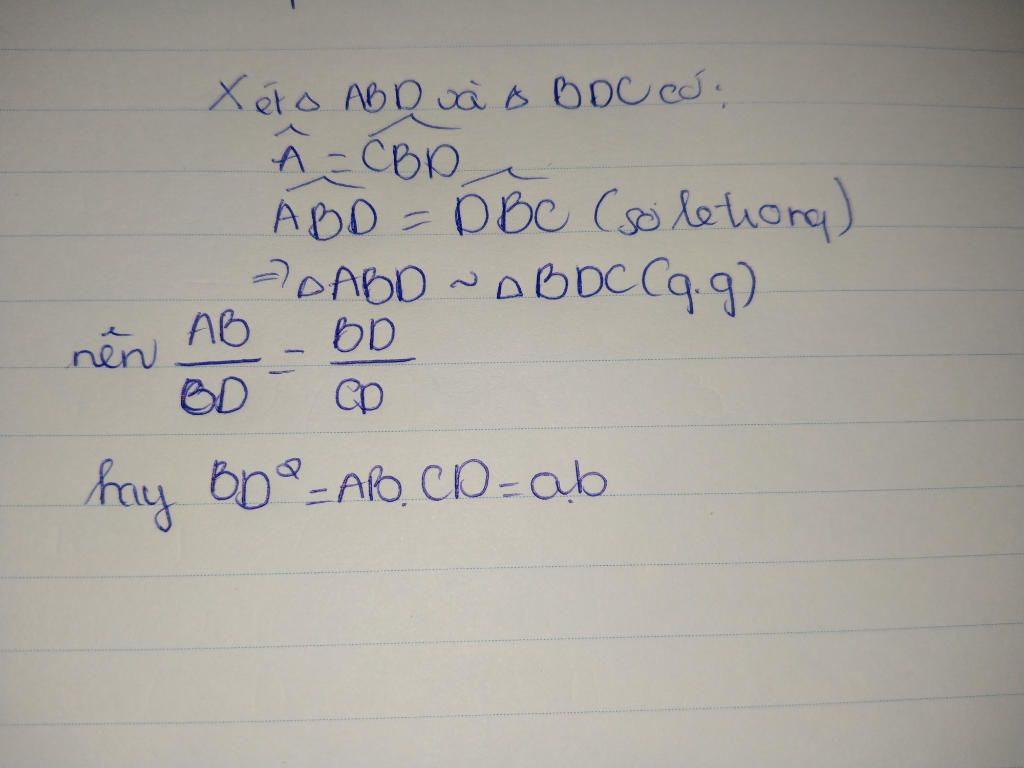 Xét △ ABD và △ BDC có:
Â = \widehat{CBD}
\widehat{ABD} = \widehat{DBC} (so le trong)
=> △ABD ~ △BDC (g.g)
nên AB/BD = BD/CD
hay BD² = AB. CD = a.b